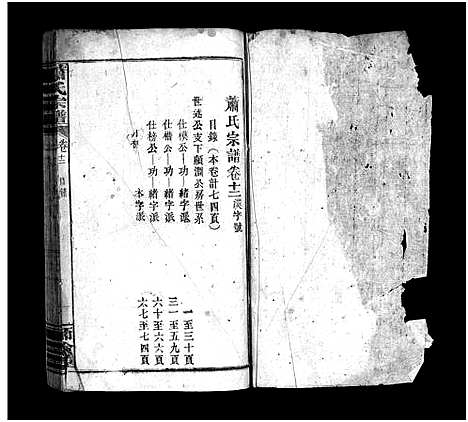 蕭氏宗譜卷十二漢字號
目錄（本卷計七四頁）
世述公支下顧澗公房世系
仕模公—功—緒字派 一至三十頁
仕楷公—功—緒字派 三一至五九頁
仕榜公—功—緒字派 六十至六六頁
本字派 六七至七四頁
蕭氏宗譜
卷十二
目錄